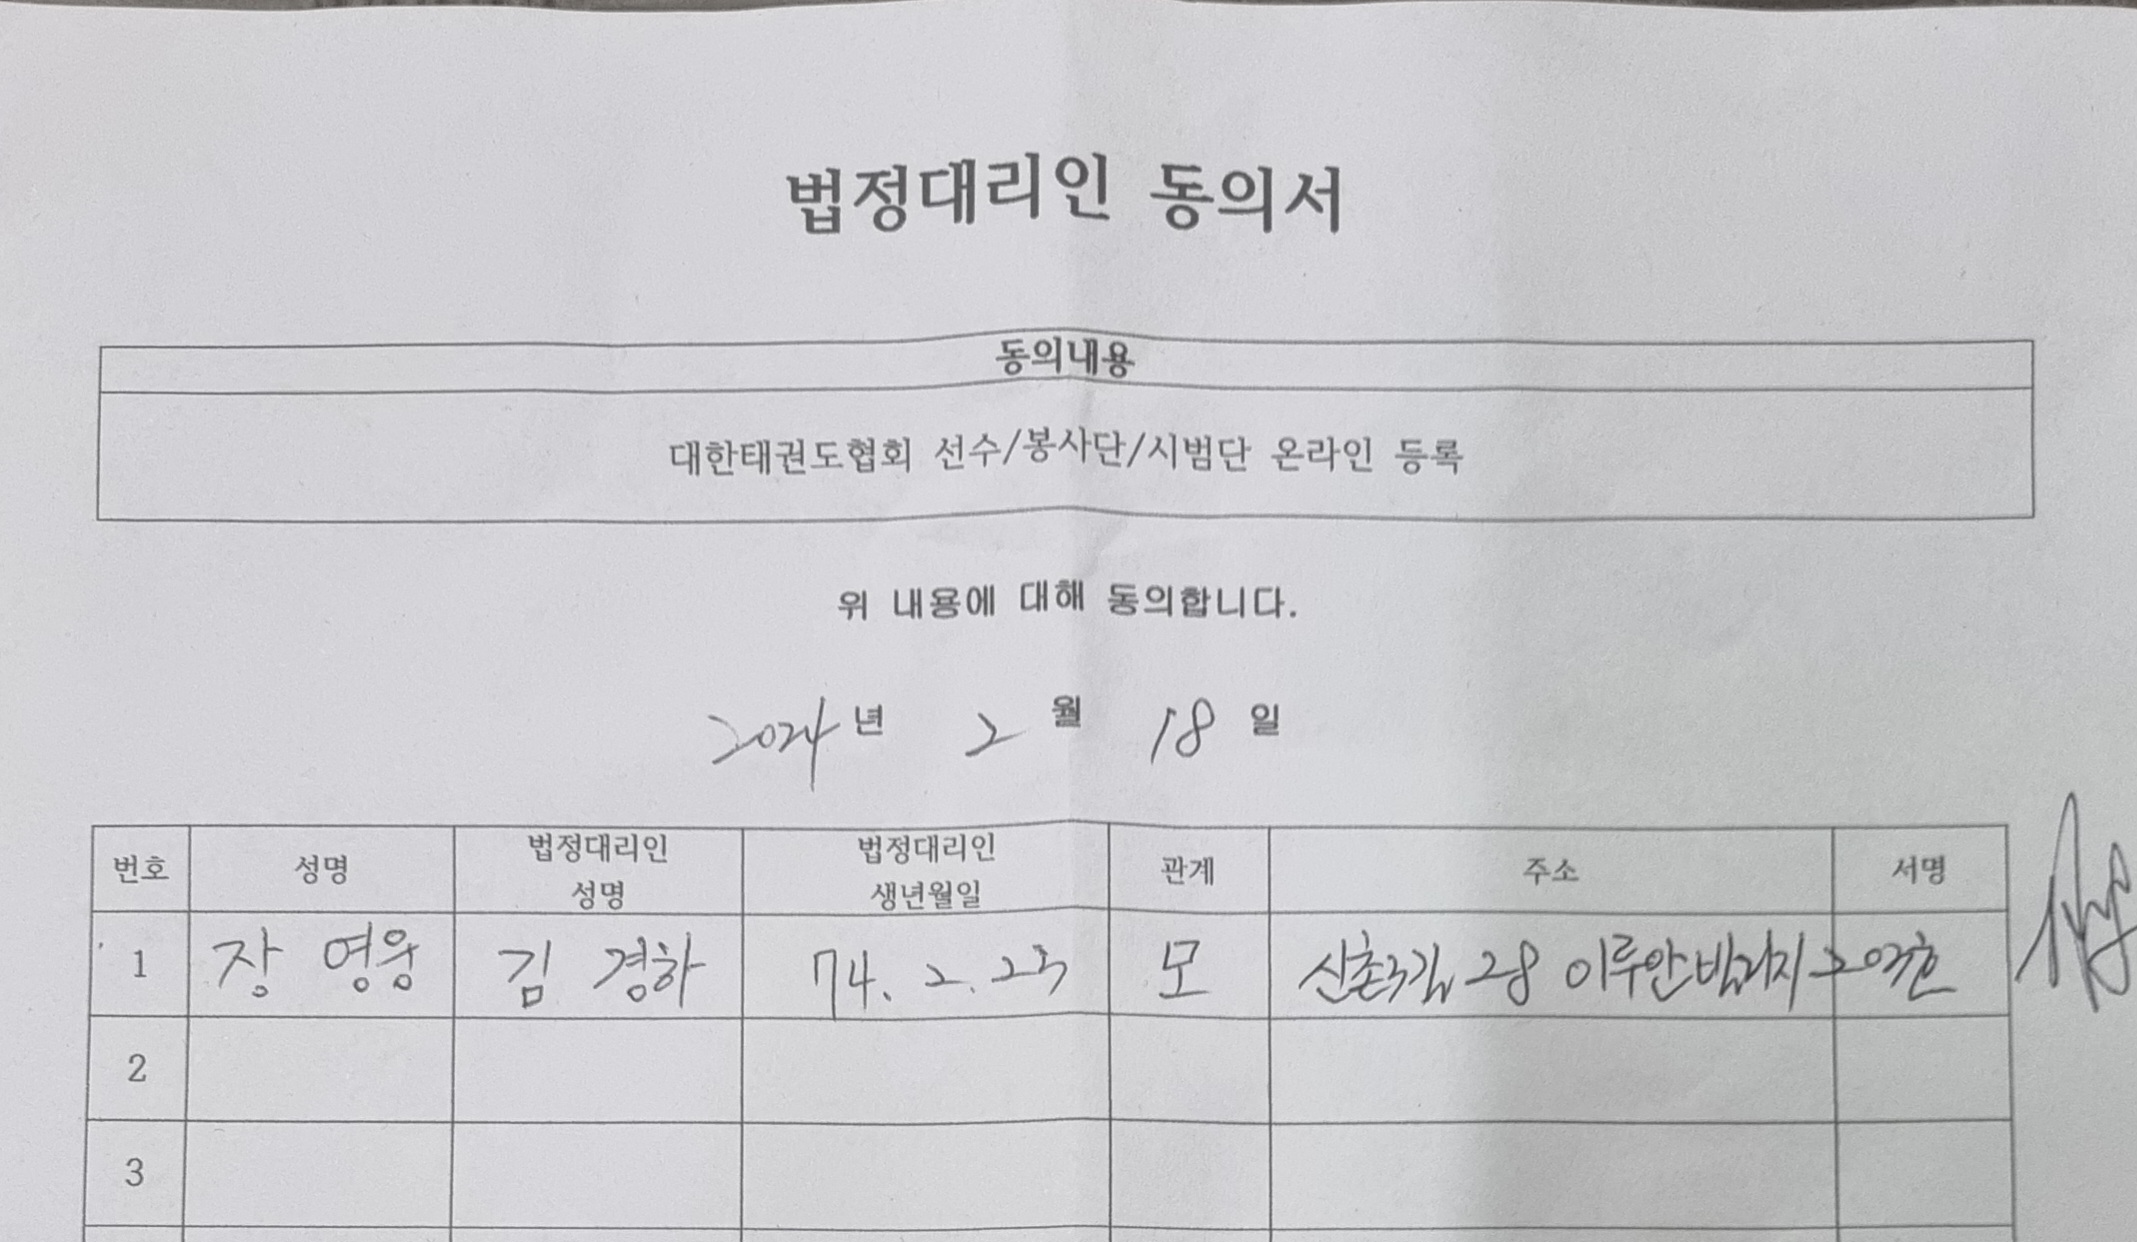 법정대리인 동의서
동의내용
대한태권도협회 선수/봉사단/시범단 온라인 등록
위 내용에 대해 동의합니다.
2024년 2월 18일
번호 성명 법정대리인 성명 법정대리인 생년월일 관계 주소 서명
1 장영웅 김경하 74. 2. 23 모 신촌3길 28 이루안빌리지 203호
2
3